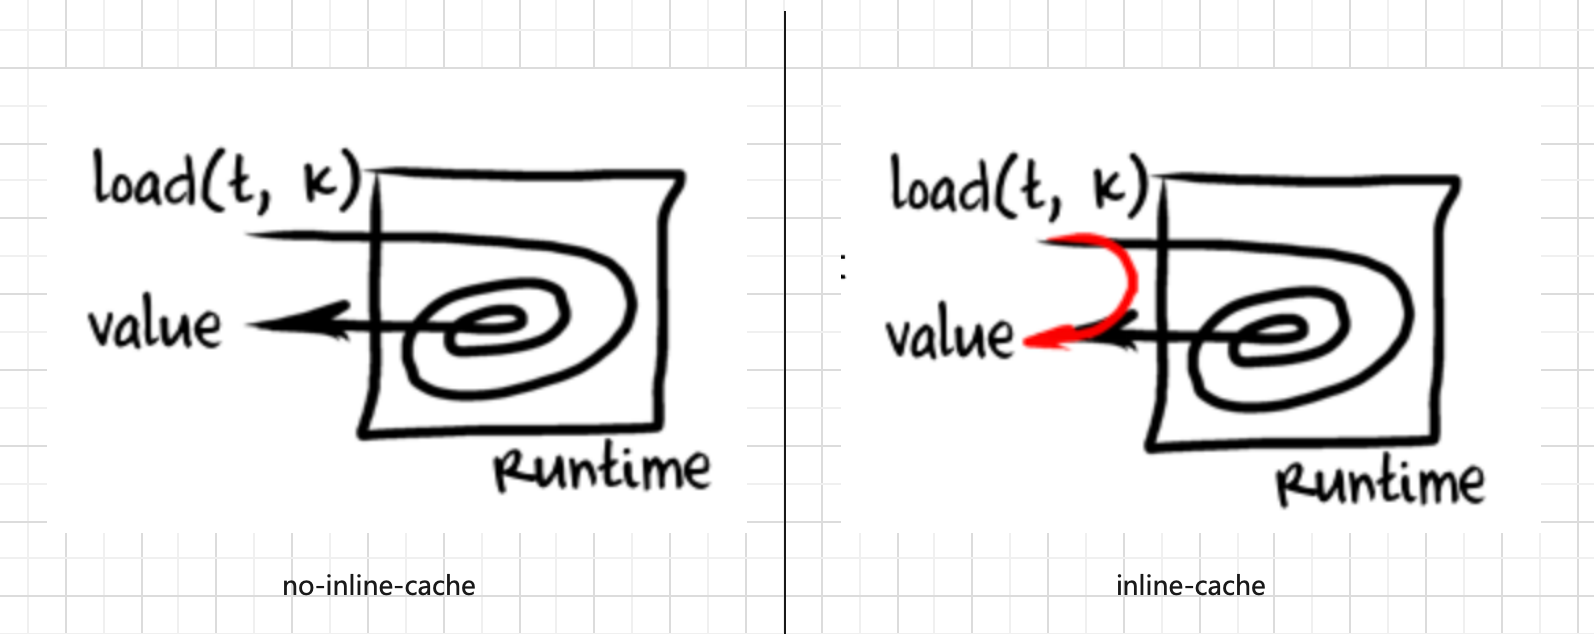 load(t, k)
value
Runtime
no-inline-cache
load(t, k)
:
value
Runtime
inline-cache